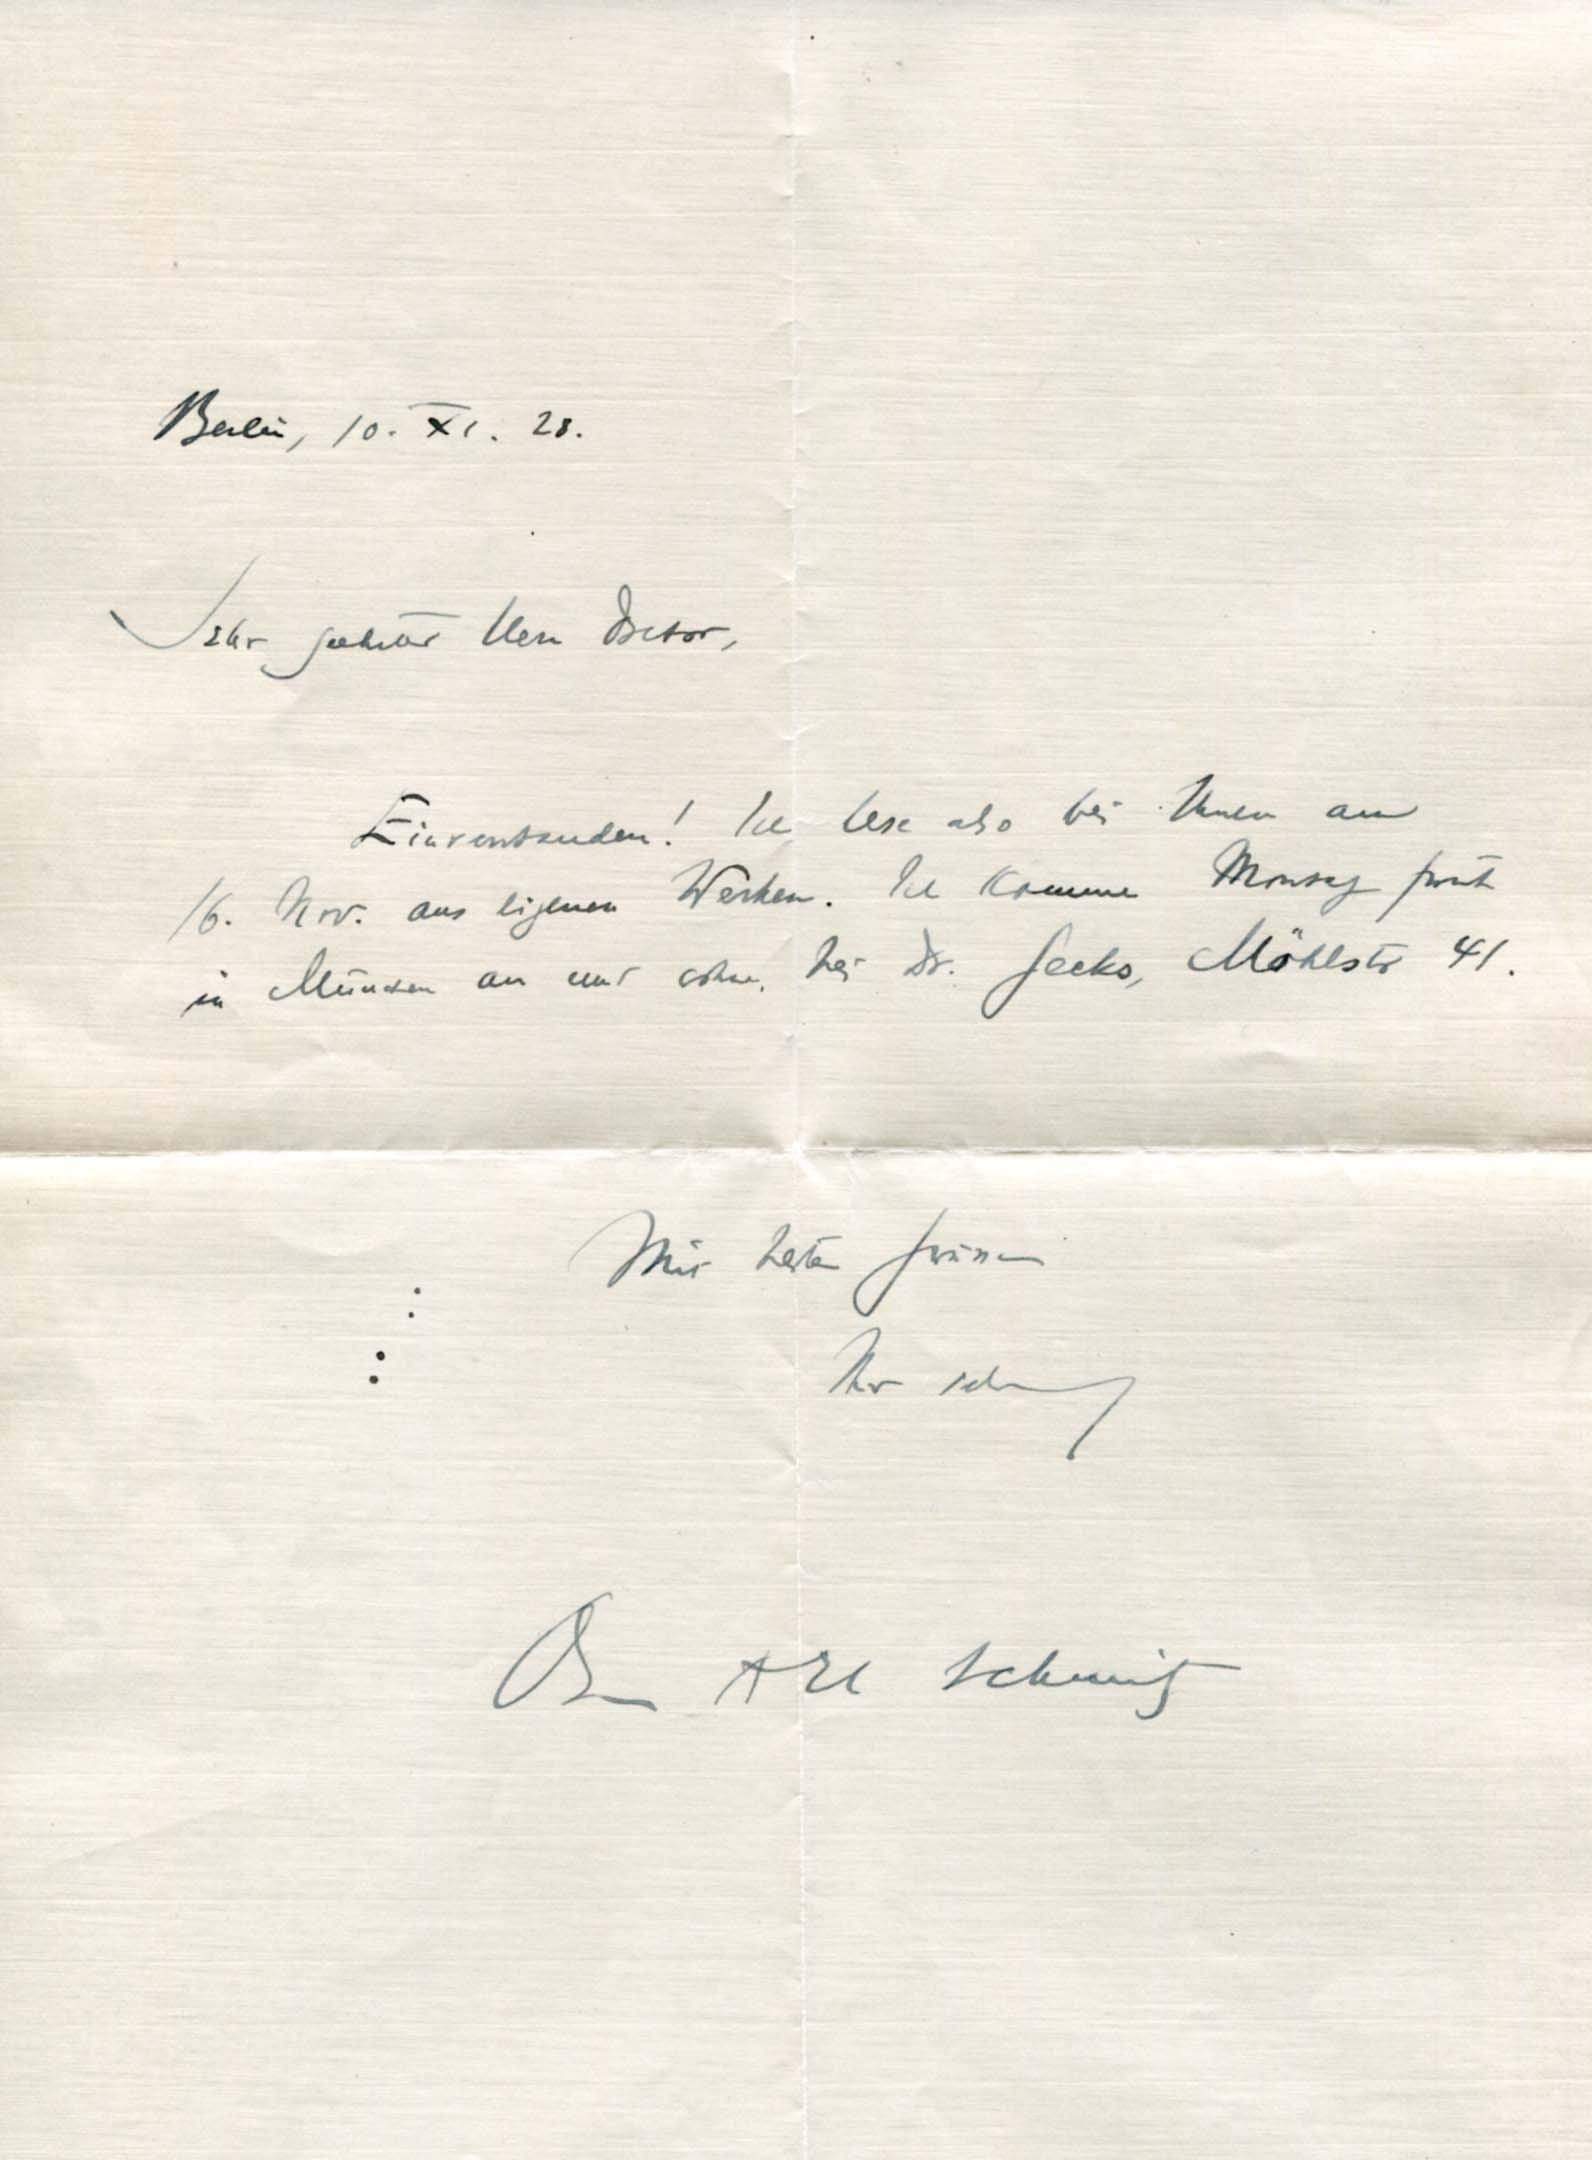 Berlin, 10. XI. 28.
Sehr geehrter Herr Doctor,
Einverstanden! Ich lese also bei Ihnen am
16. Nov. aus eigenen Werken. Ich komme Montag früh
in München an und wohne bei Dr. Gecko, Möhlstr 41.
Mit besten Grüssen
Ihr sehr
Oscar A H Schmitz